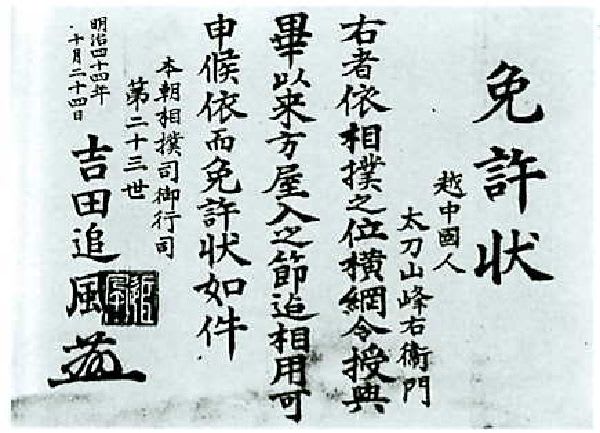 免許状
越中國人
太刀山峰右衛門
右者依相撲之位横綱令授與
畢以来方屋入之節迄相用可
申候依而免許状如件
本朝相撲司御行司
第二十三世
吉田追風
明治四十四年
十月二十四日